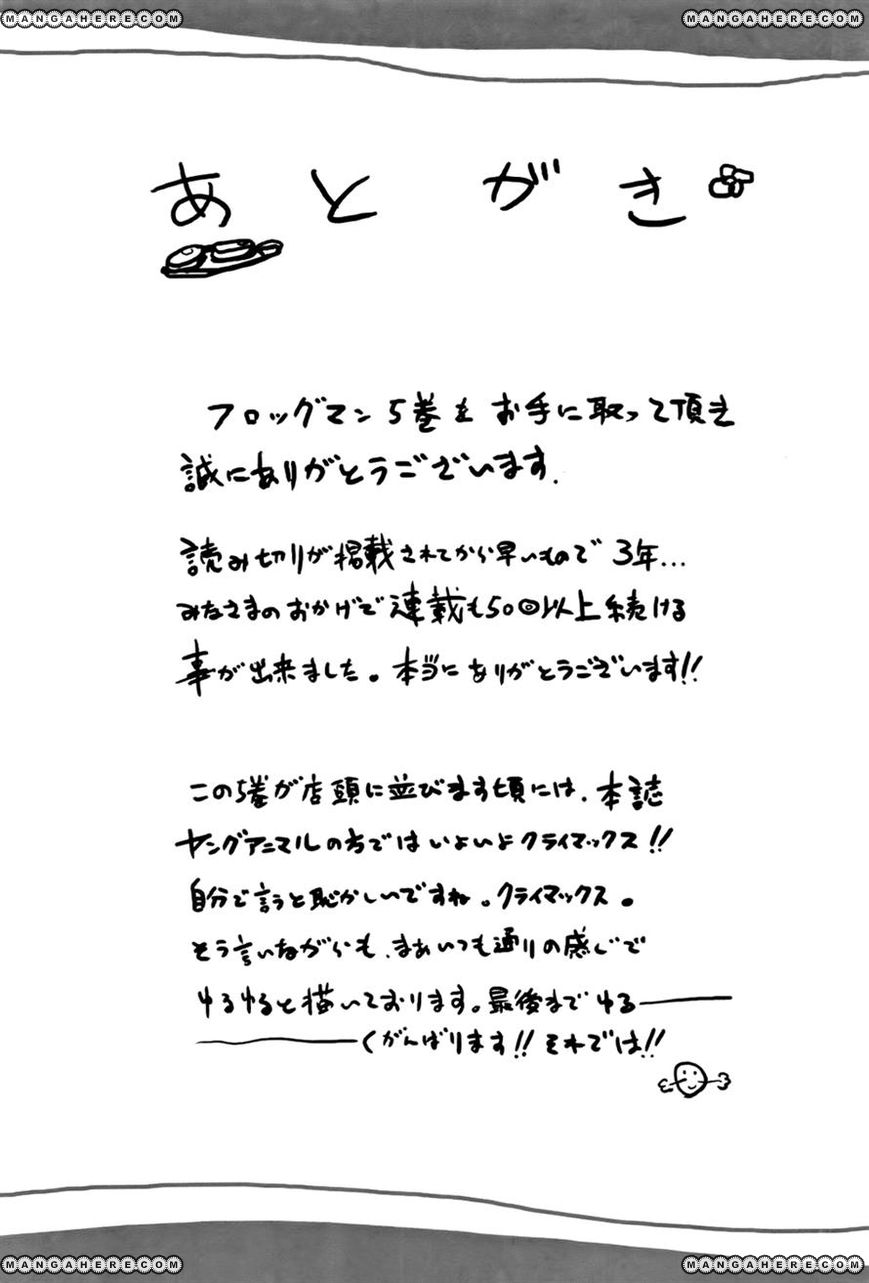 MANGAHERE.COM MANGAHERE.COM
あとがき
フロッグマン5巻をお手に取って頂き
誠にありがとうございます.
読み切りが掲載されてから早いもので3年...
みなさまのおかげで連載も50回以上続ける
事が出来ました。本当にありがとうございます!!
この5巻が店頭に並びます頃には、本誌
ヤングアニマルの方ではいよいよクライマックス!!
自分で言うと恥かしいですね。クライマックス。
そう言いながらも、まあいつも通りの感じで
ゆるゆると描いております。最後までゆる――
――くがんばります!! それでは!!
MANGAHERE.COM MANGAHERE.COM